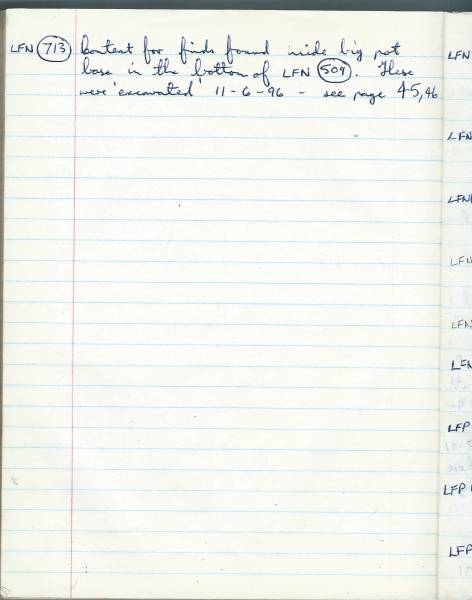 LFN 713 Context for finds found inside big pot
base in the bottom of LFN 509. These
were 'excavated' 11-6-96 - see page 45,46
LFN
LFN
LFN
LFN
LFN
LFN
LFP
LFP
LFP